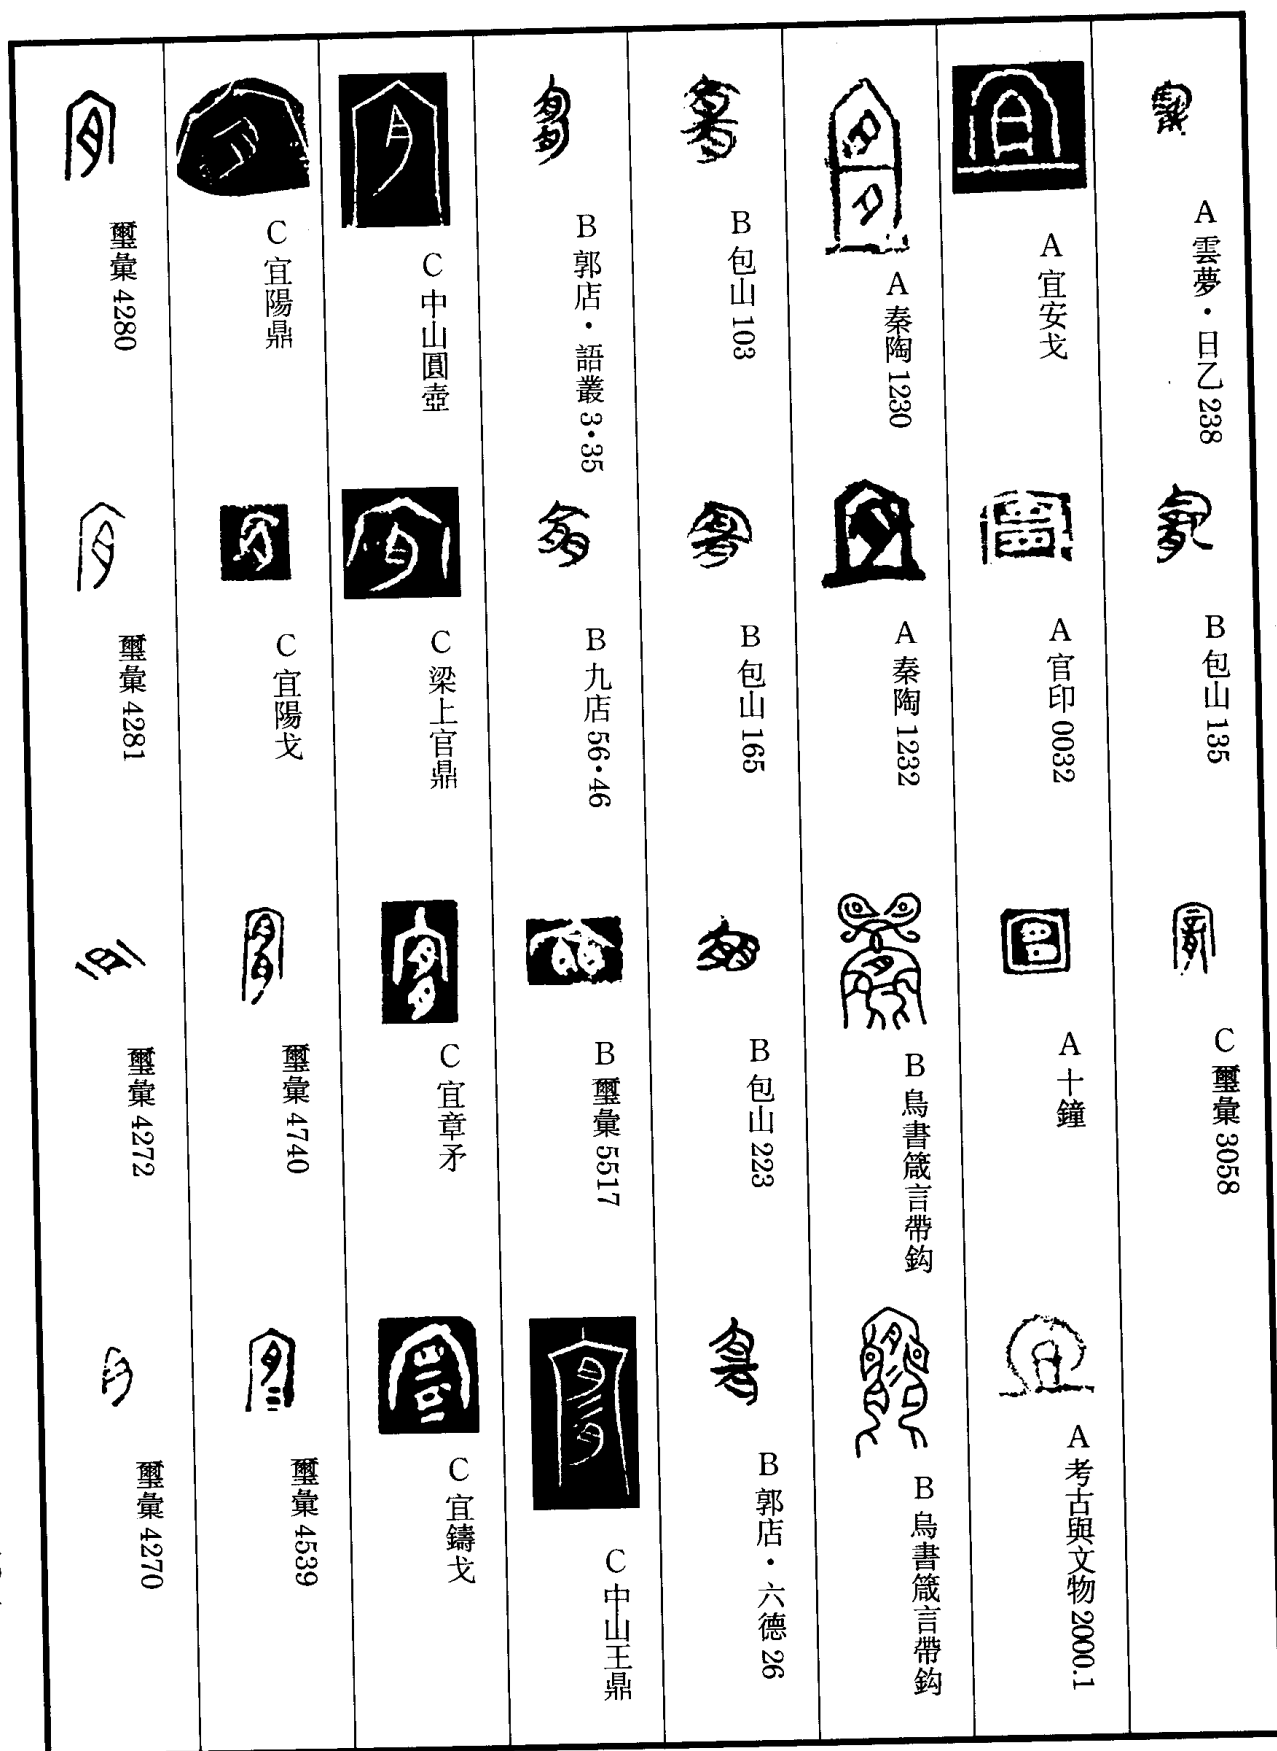 A 雲夢・日乙 238
B 包山 135
C 璽彙 3058
A 宜安戈
A 官印 0032
A 十鐘
A 考古與文物 2000.1
A 秦陶 1230
A 秦陶 1232
B 鳥書箴言帶鈎
B 鳥書箴言帶鈎
B 包山 103
B 包山 165
B 包山 223
B 郭店・六德 26
B 郭店・語叢 3・35
B 九店 56・46
B 璽彙 5517
C 中山王鼎
C 中山圓壺
C 梁上官鼎
C 宜章矛
C 宜鑄戈
C 宜陽鼎
C 宜陽戈
璽彙 4740
璽彙 4539
璽彙 4280
璽彙 4281
璽彙 4272
璽彙 4270